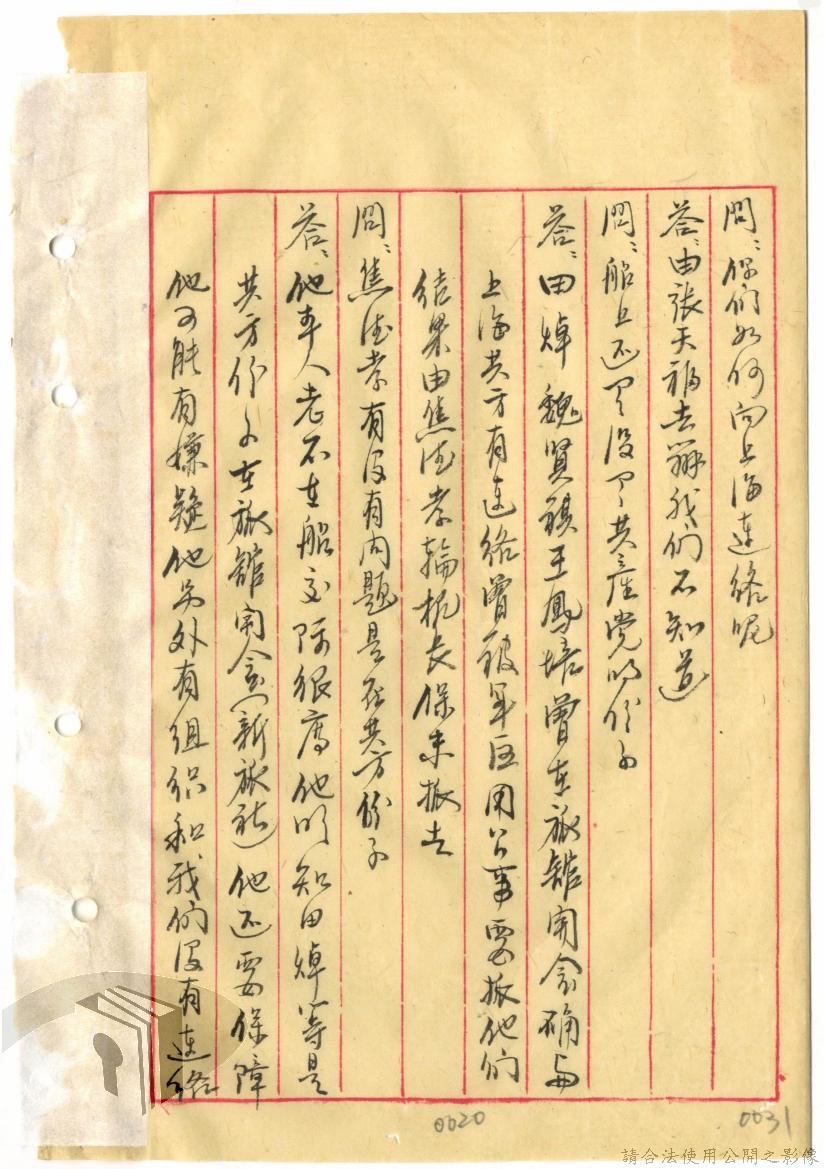 問：你們如何向上海連絡呢
答：由张天福去辦我们不知道
問：船上还有没有共產党的份子
答：田焯 魏賢祺王鳳培曾在旅舘開会确与
上海共方有連絡曾被军区用公事要扳他们
结果由焦德孝輪机长保未扳去
問：焦德孝有没有问題是否共方份子
答：他本人老不在船交际很廣他明知田焯等是
共方份子在旅舘開会（新旅社）他还要保障
他可能有嫌疑他另外有组织和我们没有連絡
0020
0031
請合法使用公開之影像